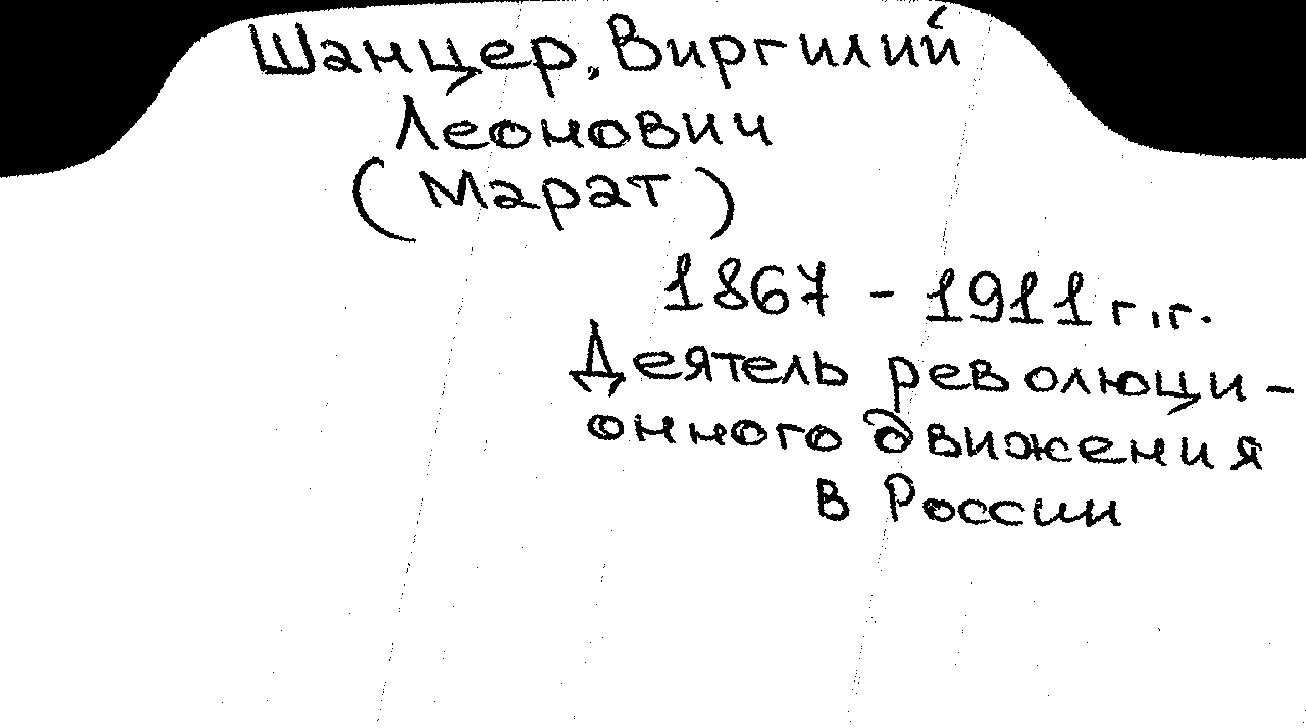 Шанцер, Виргилий
Леонович
(Марат)
1867 - 1911 г.г.
Деятель революци-
онного движения
в России